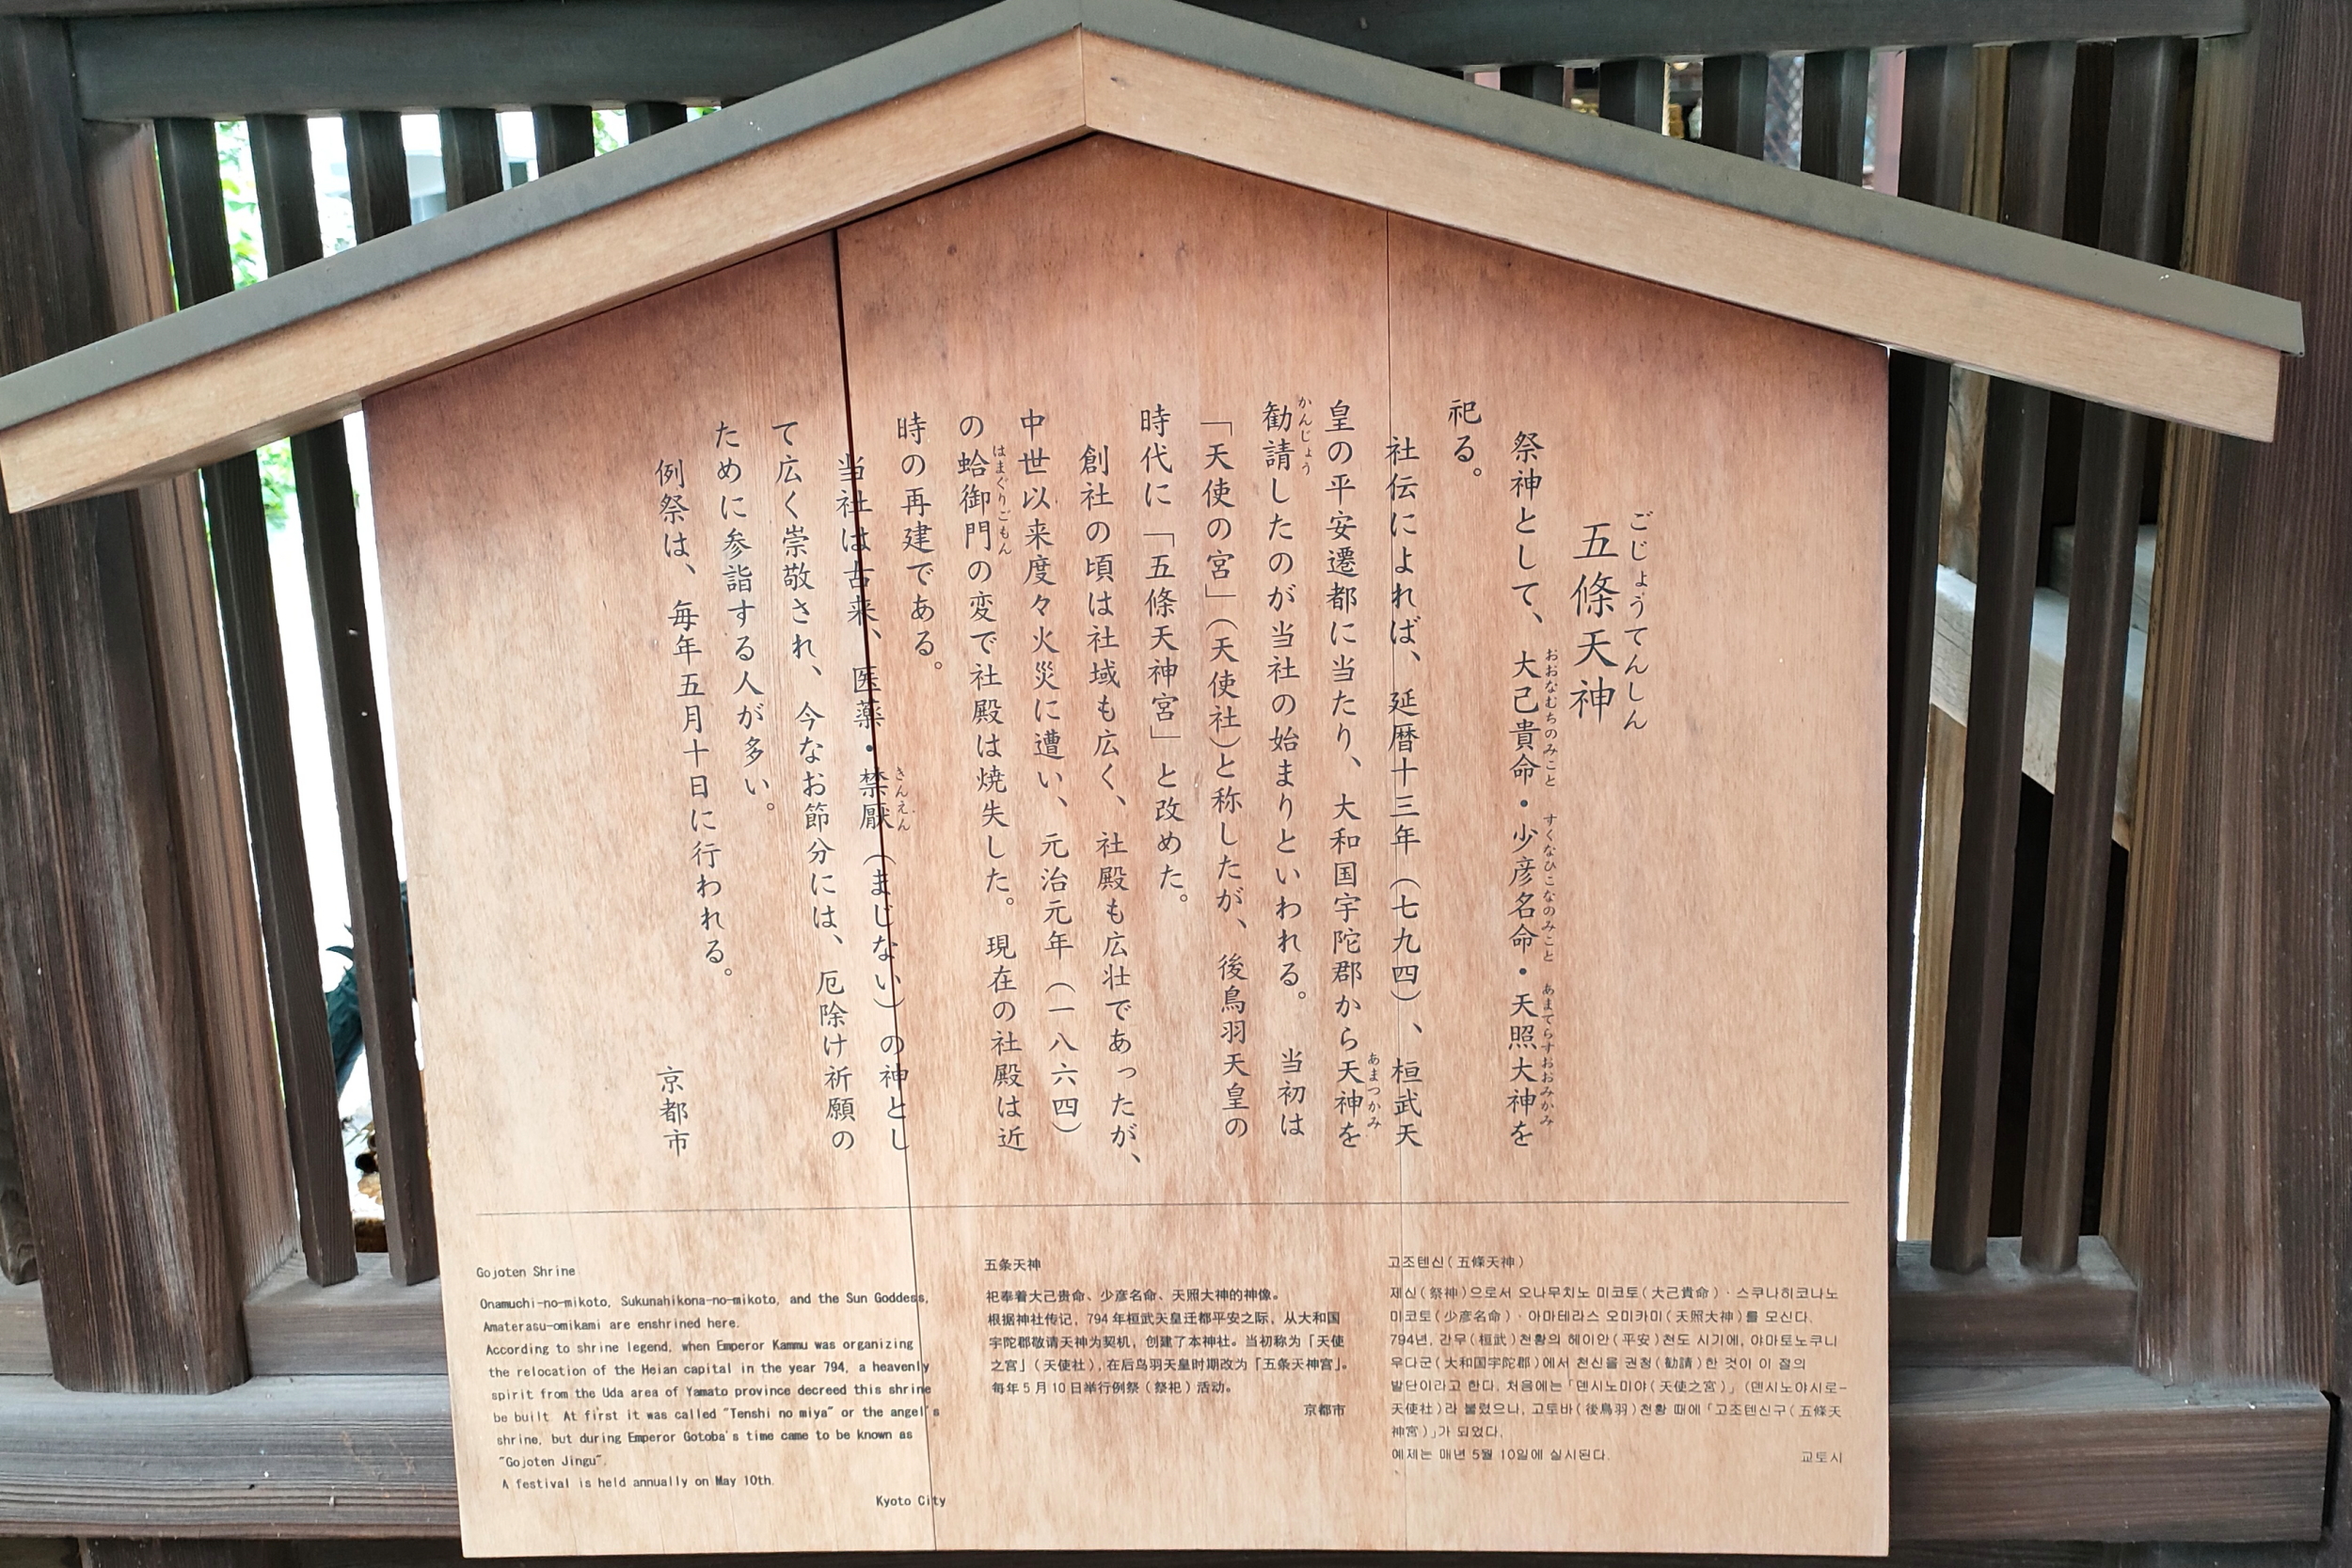 五條天神
ごじょうてんしん
祭神として、大己貴命・少彦名命・天照大神を
おおなむちのみこと すくなひこなのみこと あまてらすおおみかみ
祀る。
社伝によれば、延暦十三年（七九四）、桓武天
皇の平安遷都に当たり、大和国宇陀郡から天神を
あまつかみ
勧請したのが当社の始まりといわれる。当初は
かんじょう
「天使の宮」（天使社）と称したが、後鳥羽天皇の
時代に「五條天神宮」と改めた。
創社の頃は社域も広く、社殿も広壮であったが、
中世以来度々火災に遭い、元治元年（一八六四）
の蛤御門の変で社殿は焼失した。現在の社殿は近
はまぐりごもん
時の再建である。
当社は古来、医薬・禁厭（まじない）の神とし
きんえん
て広く崇敬され、今なお節分には、厄除け祈願の
ために参詣する人が多い。
例祭は、毎年五月十日に行われる。
京都市
Gojoten Shrine
Onamuchi-no-mikoto, Sukunahikona-no-mikoto, and the Sun Goddess,
Amaterasu-omikami are enshrined here.
According to shrine legend, when Emperor Kammu was organizing
the relocation of the Heian capital in the year 794, a heavenly
spirit from the Uda area of Yamato province decreed this shrine
be built. At first it was called "Tenshi no miya" or the angel's
shrine, but during Emperor Gotoba's time came to be known as
"Gojoten Jingu".
A festival is held annually on May 10th.
Kyoto City
五条天神
祀奉着大己贵命、少彦名命、天照大神的神像。
根据神社传记，794年桓武天皇迁都平安之际，从大和国
宇陀郡敬请天神为契机，创建了本神社。当初称为「天使
之宫」（天使社），在后鸟羽天皇时期改为「五条天神宫」。
每年5月10日举行例祭（祭祀）活动。
京都市
고조텐신(五條天神)
제신(祭神)으로서 오나무치노 미코토(大己貴命)·스쿠나히코나노
미코토(少彦名命)·아마테라스 오미카미(天照大神)를 모신다.
794년, 간무(桓武)천황의 헤이안(平安)천도 시기에, 야마토노쿠니
우다군(大和国宇陀郡)에서 천신을 권청(勧請)한 것이 이 절의
발단이라고 한다. 처음에는「덴시노미야(天使之宮)」(덴시노야시로-
天使社)라 불렸으나, 고토바(後鳥羽)천황 때에「고조텐신구(五條天
神宮)」가 되었다.
예제는 매년 5월 10일에 실시된다.
교토시